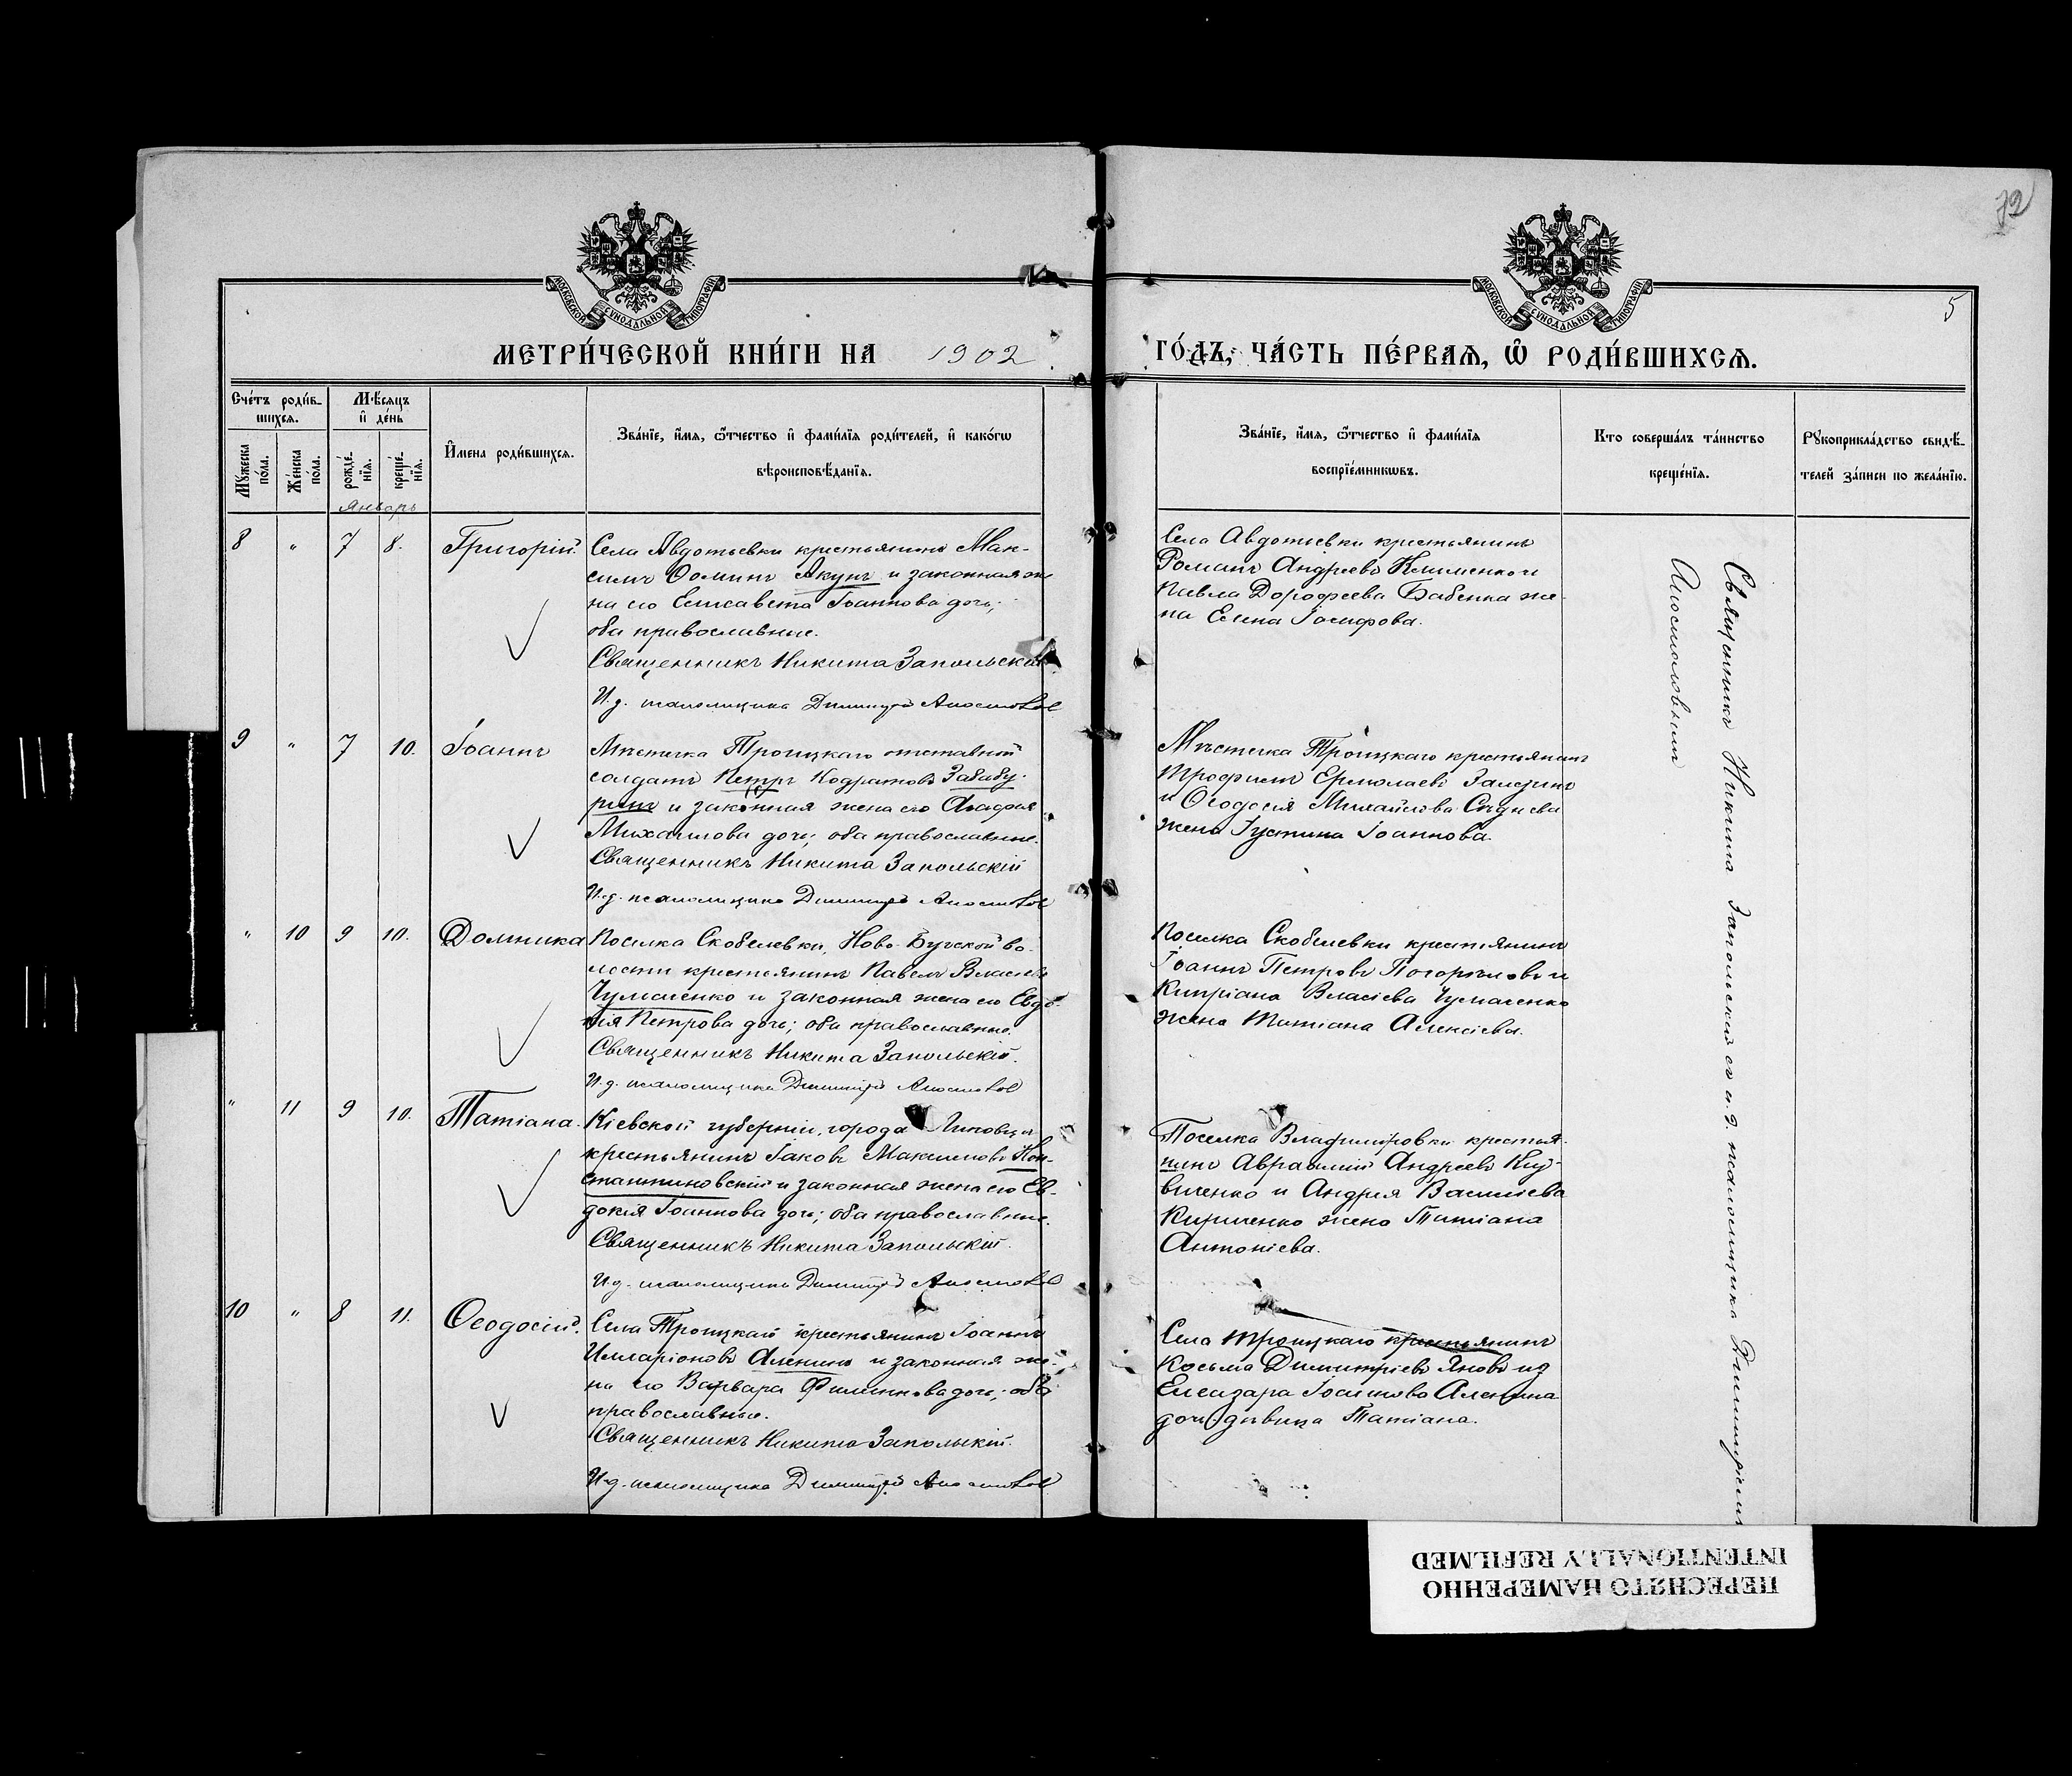 72
5
МОСКОВСКОЙ СУНОДАЛЬНОЙ ТИПОГРАФІИ
МОСКОВСКОЙ СУНОДАЛЬНОЙ ТИПОГРАФІИ
МЕТРИ́ЧЕСКОЙ КНИ́ГИ НА 1902
ГО́ДЪ, ЧА́СТЬ ПЕ́РВАЯ, Ѿ РОДИ́ВШИХСЯ.
Сче́тъ роди́в-
шихся.
Мѣ́сяцъ
и҆ де́нь
Му́жеска
по́ла.
Же́нска
по́ла.
рожде́-
нїя.
креще́-
нїя.
И҆мена роди́вшихся.
Зва́нїе, и҆́мя, ѻ҆́тчество и҆ фами́лїя роди́телей, и҆ како́гѡ
вѣроисповѣ́данїя.
Зва́нїе, и҆́мя, ѻ҆́тчество и҆ фами́лїя
воспрїе́мникѡвъ.
Кто соверша́лъ та́инство
креще́нїя.
Рукоприкла́дство свидѣ́-
телей за́писи по жела́нїю.
Январь
8 " 7 8. Григорій.
Села Авдотьевки крестьянинъ Мак-
симъ Ѳоминъ Якунъ и законная же
на его Елисавета Іоаннова дочь;
оба православные.
Священникъ Никита Запольскій
И. д. псаломщика Димитрій
Села Авдотьевки крестьянинъ
Романъ Андреевъ Клименко и
Павла Дорофеева Бабенка же-
на Елена Іосифова.
9 " 7 10. Іоаннъ
Мѣстечка Троицкаго отставной
солдатъ Петръ Кодратовъ Забабу-
ринъ и законная жена его Агафія
Михаилова дочь; оба православные.
Священникъ Никита Запольскій
И. д. псаломщика Димитрій
Мѣстечка Троицкаго крестьянинъ
Трофимъ Ермолаевъ
и Ѳеодосія Михайлова
жена Іустина Іоаннова.
" 10 9 10. Домника
Поселка Скобелевки, Ново-Бугской во-
лости крестьянинъ Павелъ Власіевъ
Чумаченко и законная жена его Евдо-
кія Петрова дочь; оба православные.
Священникъ Никита Запольскій.
И. д. псаломщика Димитрій
Поселка Скобелевки крестьянинъ
Іоаннъ Петровъ Погорѣловъ и
Кипріана Власіева Чумаченко
жена Татіана Алексіева.
" 11 9 10. Татіана.
Кіевской губерніи, города Липовца
крестьянинъ Іаковъ Максимовъ Кон-
стантиновскій и законная жена его Ев-
докія Іоаннова дочь; оба православные.
Священникъ Никита Запольскій.
И. д. псаломщика Димитрій
Поселка Владиміровки крестья-
нинъ Авраамій Андреевъ
и Андрея Василіева
Кириченко жена Татіана
Антоніева.
10 " 8 11. Ѳеодосій.
Села Троицкаго крестьянинъ Іоаннъ
Илларіоновъ Аленинъ и законная же-
на его Варвара Филиппова дочь; оба
православные.
Священникъ Никита Запольскій.
И. д. псаломщика Димитрій
Села Троицкаго крестьянинъ
Косьма Димитріевъ
Елеазара Аленина
дочь дѣвица Татіана.
Священникъ Никита Запольскій съ и. д. псаломщика Димитріемъ
ПЕРЕСНЯТО НАМЕРЕННО
INTENTIONALLY REFILMED